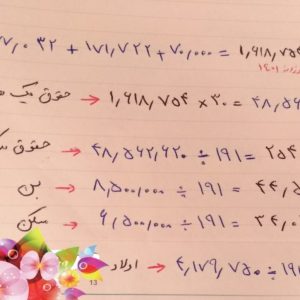 ۷۷,۰۳۲ + ۱۷۱,۷۲۲ + ۷۰,۰۰۰ = ۱,۶۱۸,۷۵۴
۱۴۰۱
حقوق یک → ۱,۶۱۸,۷۵۴ × ۳۰ = ۴۸,۵۶
حقوق → ۴۸,۵۶۲,۶۲۰ ÷ ۱۹۱ = ۲۵۴
بن → ۸,۵۰۰,۰۰۰ ÷ ۱۹۱ = ۴۴,۵
مسکن → ۶,۵۰۰,۰۰۰ ÷ ۱۹۱ = ۳۴,۰
اولاد → ۴,۱۷۹,۷۵۰ ÷ ۱۹۱
13